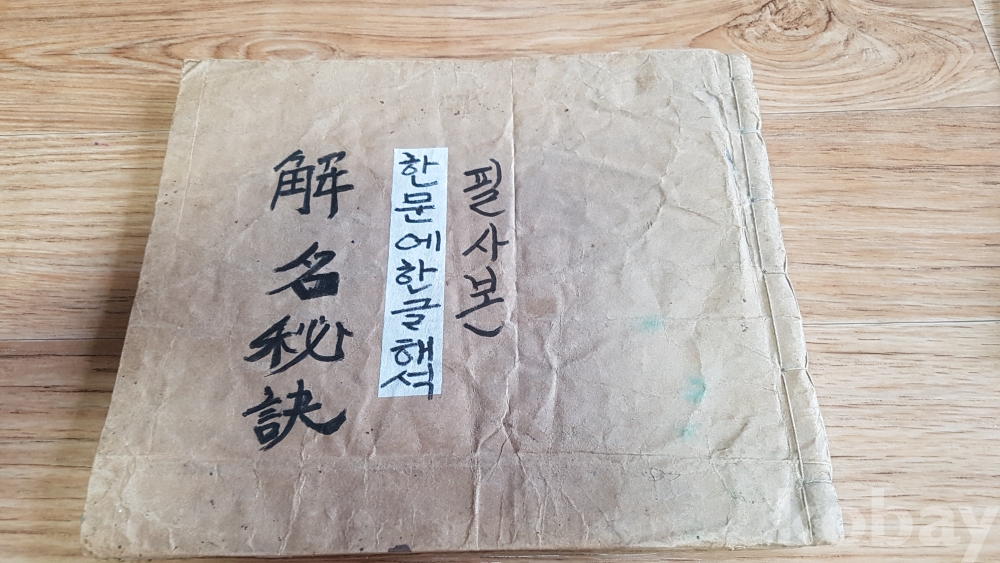 필사본
한문에한글해석
解名秘訣
kobay